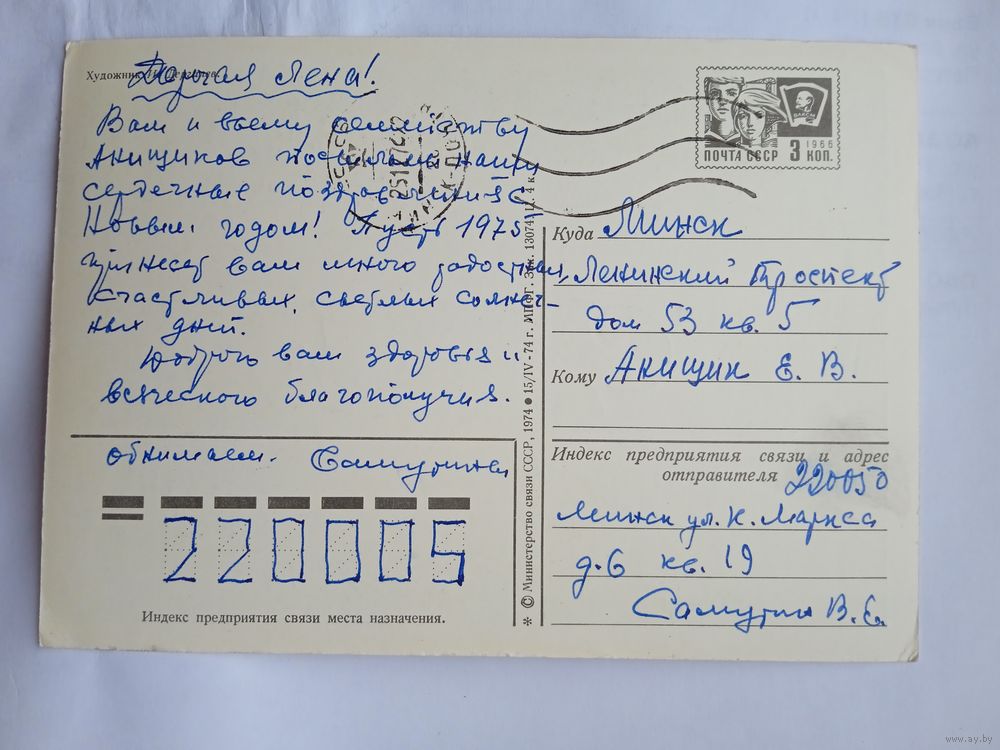 Художник
Дорогая Лена!
Вам и всему семейству
Анищиков посылаем наши
сердечные поздравления с
Новым годом! Пусть 1975
принесет вам много радостных,
счастливых, светлых солнеч-
ных дней.
Доброго вам здоровья и
всяческого благополучия.
обнимаем. Самутины
220005
Индекс предприятия связи места назначения.
* © Министерство связи СССР, 1974 ● 15/IV - 74 г. МПФГ. Зак. 13074. Ц. 4 к.
ВЛКСМ
1966
ПОЧТА СССР 3 КОП.
Куда Минск
Ленинский Проспект
дом 53 кв. 5
Кому Анищик Е. В.
Индекс предприятия связи и адрес
отправителя 220050
Минск ул. К. Маркса
д. 6 кв. 19
Самутин В. Ев.
www.ay.by